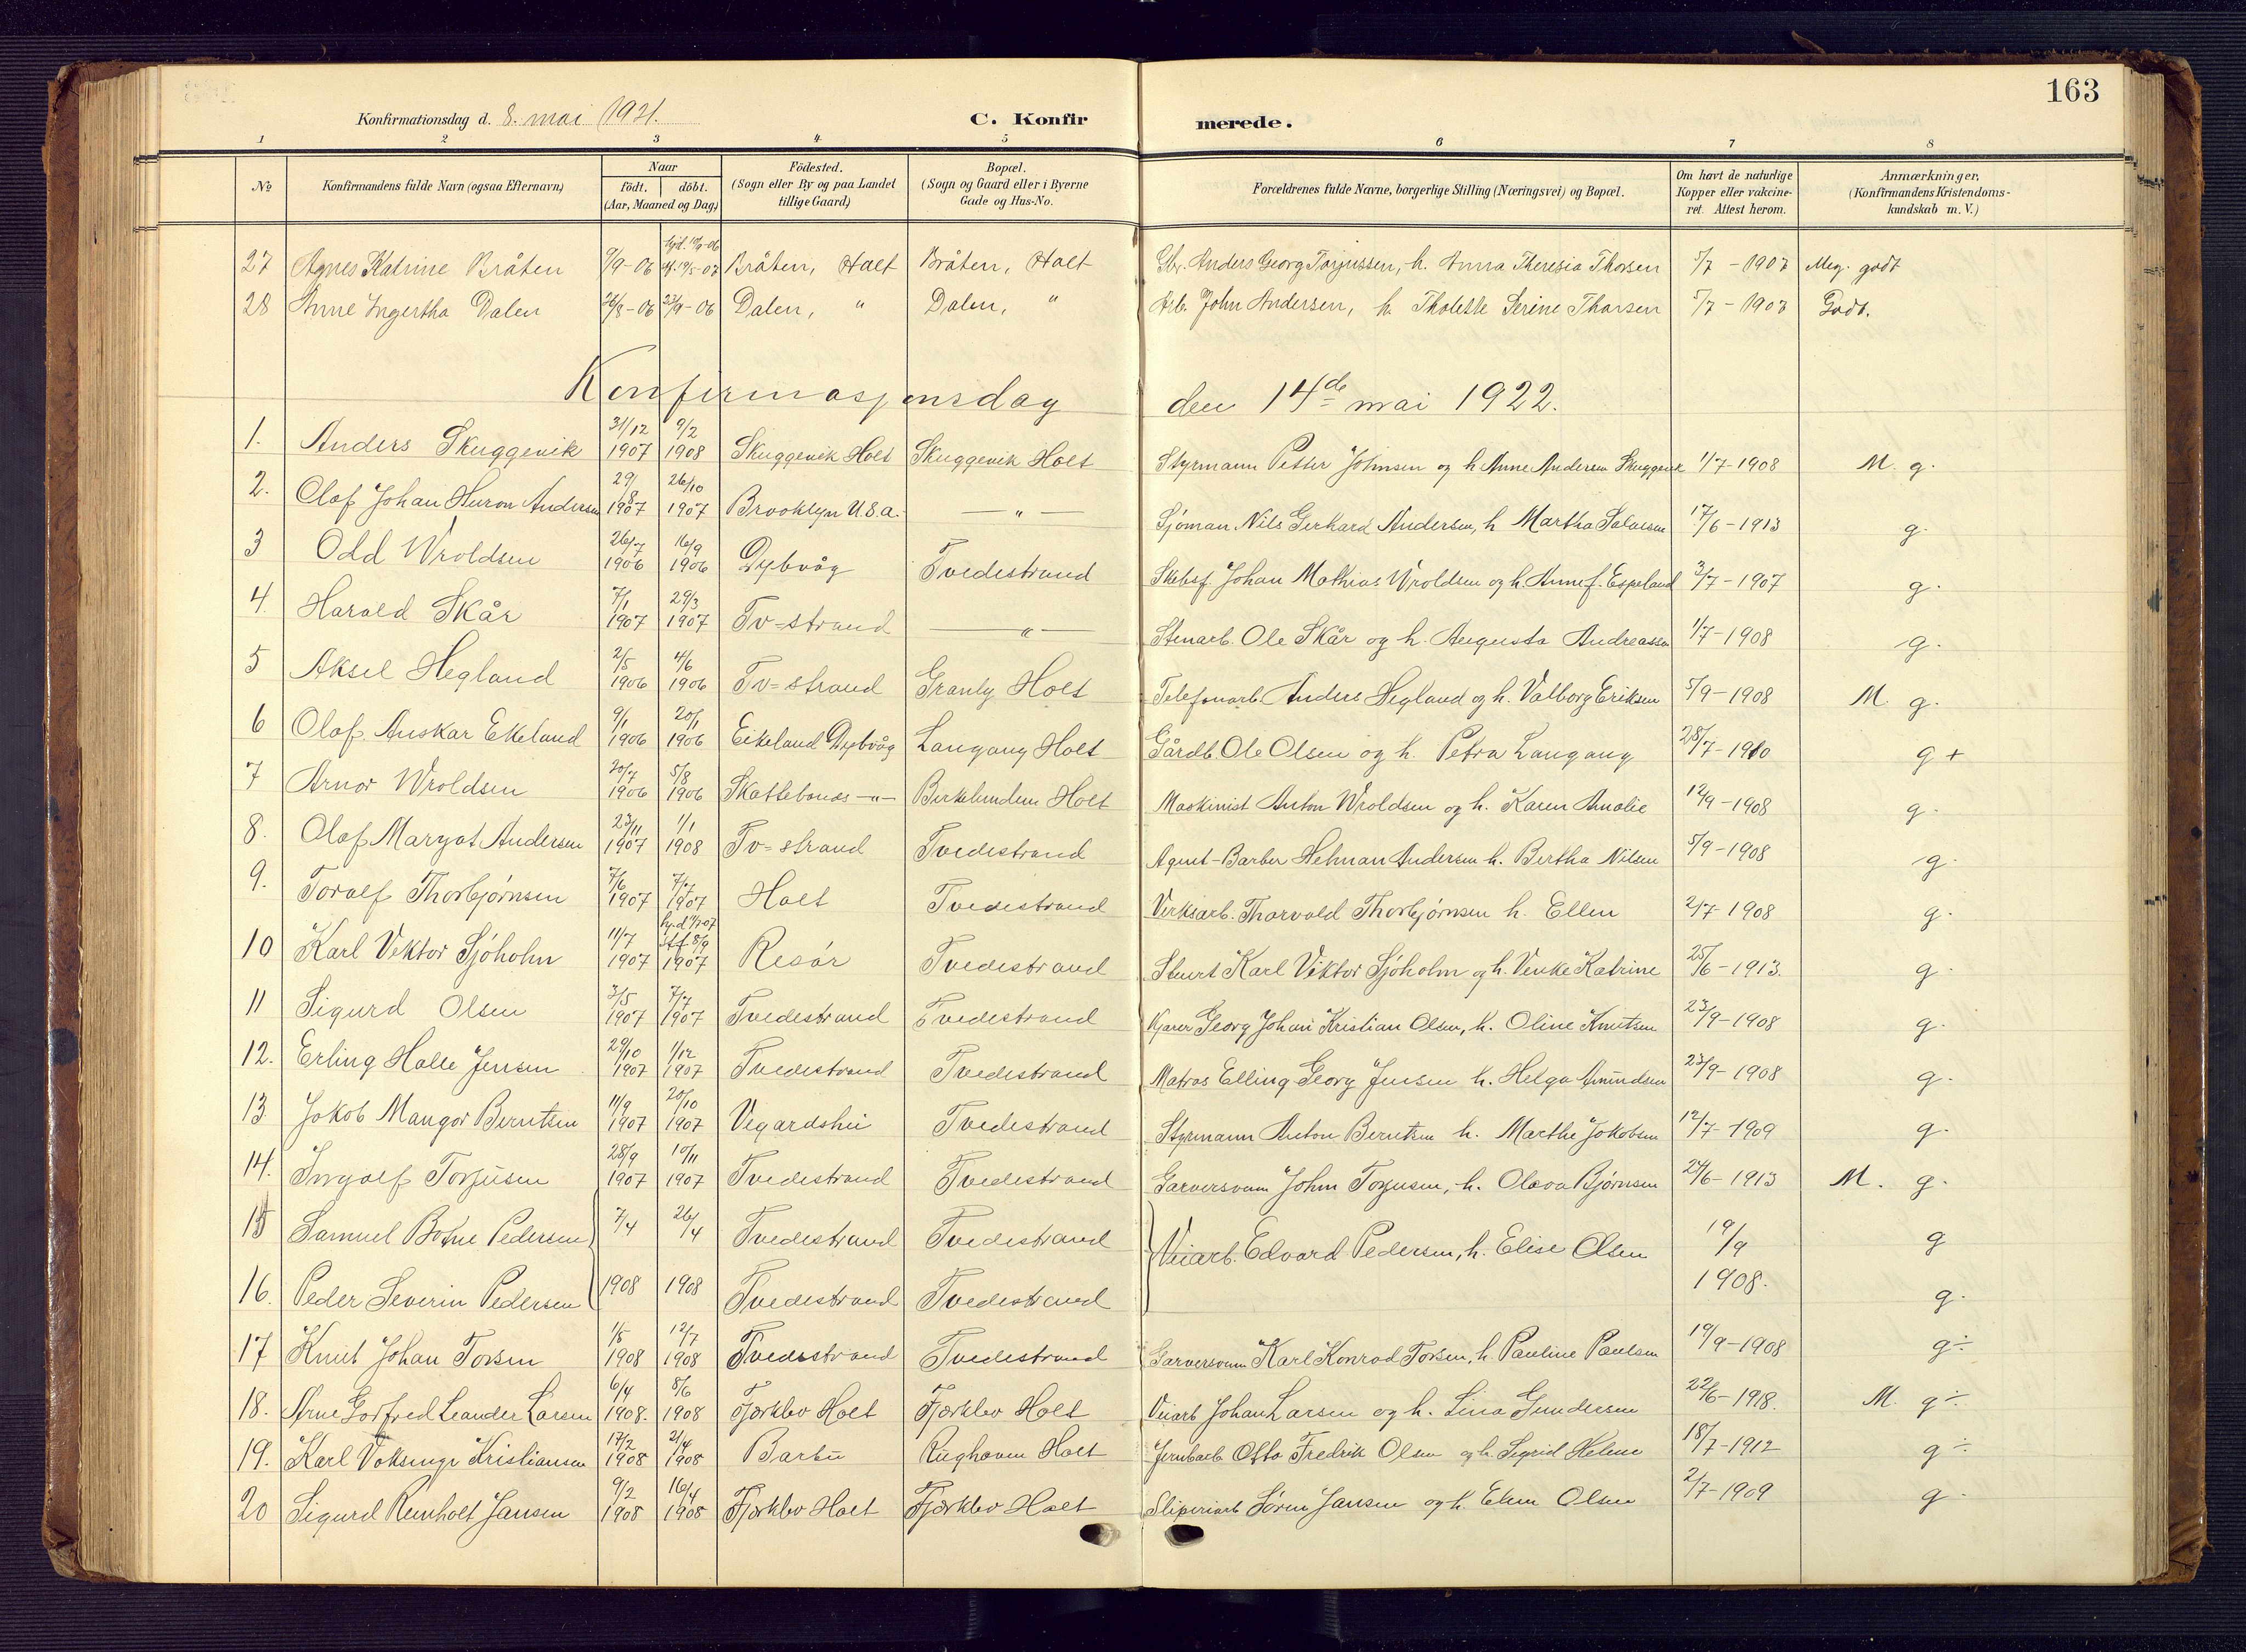 163
Konfirmationsdag d. 8. mai 1921.
C. Konfirmerede.
1 2 3 4 5 6 7 8
No
Konfirmandens fulde Navn (ogsaa Efternavn)
Naar
födt. döbt.
(Aar, Maaned og Dag)
Födested.
(Sogn eller By og paa Landet
tillige Gaard)
Bopæl.
(Sogn og Gaard eller i Byerne
Gade og Hus-No.
Forældrenes fulde Navne, borgerlige Stilling (Næringsvei) og Bopæl.
Om havt de naturlige
Kopper eller vakcine-
ret. Attest herom.
Anmærkninger,
(Konfirmandens Kristendoms-
kundskab m. V.)
27 Agnes Katrine Bråten 9/9-06 Bråten, Holt Bråten, Holt Anders Georg Torjussen, h. Anna Theresia Thorsen 5/7 - 1907 Meg. godt
28 Anne Ingertha Dalen 26/8-06 23/9-06 Dalen, " Dalen, " Arb. John Andersen, h. Tholette Serine Thorsen 5/7 - 1907 Godt.
Konfirmasjonsdag den 14de mai 1922.
1. Anders Skuggevik 31/12 1907 9/2 1908 Skuggevik Holt Skuggevik Holt Styrmann Petter Johnsen og h. Anne Andersen Skuggevik 1/7-1908 M. g.
2. Olaf Johan Huron Andersen 29/8 1907 26/10 1907 Brooklyn U.S.a. — " — Sjøman Nils Gerhard Andersen, h. Martha Salvesen 17/6-1913 g.
3 Odd Wroldsen 26/7 1906 16/9 1906 Dybvåg Tvedestrand Johan Mathias Wroldsen og h. Anne f. Espeland 3/7-1907 g.
4. Harald Skår 7/1 1907 29/3 1907 Tv-strand — " — Stenarb. Ole Skår og h. Augusta Andreassen 1/7-1908 g.
5 Aksel Hegland 2/5 1906 4/6 1906 Tv-strand Granly Holt Telefonarb. Anders Hegland og h. Valborg Eriksen 5/9-1908 M. g.
6 Olaf Anskar Ekeland 9/1 1906 20/1 1906 Eikeland Dybvåg Langang Holt Gårdb. Ole Olsen og h. Petra Langang 28/7-1910 g +
7 Arnor Wroldsen 20/7 1906 5/8 1906 Skottebonæs - " - Birkelunden Holt Maskinist Anton Wroldsen og h. Karen Amalie 12/9-1908 g.
8. Olaf Margot Andersen 23/11 1907 1/1 1908 Tv-strand Tvedestrand Agent-Barber Helman Andersen h. Bertha Nilsen 5/9-1908 g.
9. Toralf Thorbjørnsen 7/6 1907 7/7 1907 Holt Tvedestrand Verksarb. Thorvald Thorbjørnsen h. Ellen 2/7 1908 g.
10 Karl Vektor Sjøholm 11/7 1907 hj.d. 11/7 07 Stf. 8/9 1907 Risør Tvedestrand Stuert Karl Viktor Sjøholm og h. Venke Katrine 25/6-1913. g.
11 Sigurd Olsen 3/5 1907 7/7 1907 Tvedestrand Tvedestrand Georg Johan Kristian Olsen, h. Oline Knutsen 23/9-1908 g.
12. Erling Halle Jensen 29/10 1907 1/12 1907 Tvedestrand Tvedestrand Matros Elling Georg Jensen h. Helga Amundsen 23/9-1908 g.
13 Jakob Mangor Berntsen 11/9 1907 20/10 1907 Vegardshei Tvedestrand Styrmann Anton Berntsen h. Marthe Jakobsen 12/7-1909 g.
14. Ingolf Torjusen 28/9 1907 10/11 1907 Tvedestrand Tvedestrand Garversvenn John Torjusen, h. Olava Bjørnsen 24/6-1913 M. g.
15 Samuel Botne Pedersen 7/4 26/4 Tvedestrand Tvedestrand Veiarb. Edvard Pedersen, h. Elise Olsen 19/9 g
16. Peder Severin Pedersen 1908 1908 Tvedestrand Tvedestrand 1908. g.
17 Knut Johan Torsen 1/5 1908 12/7 1908 Tvedestrand Tvedestrand Garversvenn Karl Konrad Torsen, h. Pauline Paulsen 19/9-1908 g÷
18. Arne Gotfred Leander Larsen 6/4 1908. 8/6 1908 Fjærklev Holt Fjærklev Holt Veiarb Johan Larsen og h. Lina Gundersen 22/6-1918. M. g÷
19. Karl Voksinge Kristiansen 17/2 1908 2/4 1908 Barbu Rughaven Holt Jernbarb. Otto Fredrik Olsen og h. Sigrid Helene 18/7-1912 g÷
20 Sigurd Reinholt Jansen 9/2 1908 16/4 1908 Fjærklev Holt Fjærklev Holt Sliperiarb Søren Jansen og h. Elen Olsen 2/7-1909 g.